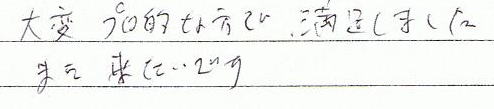 大変 プロ的な方で 満足しました
また 来たいです